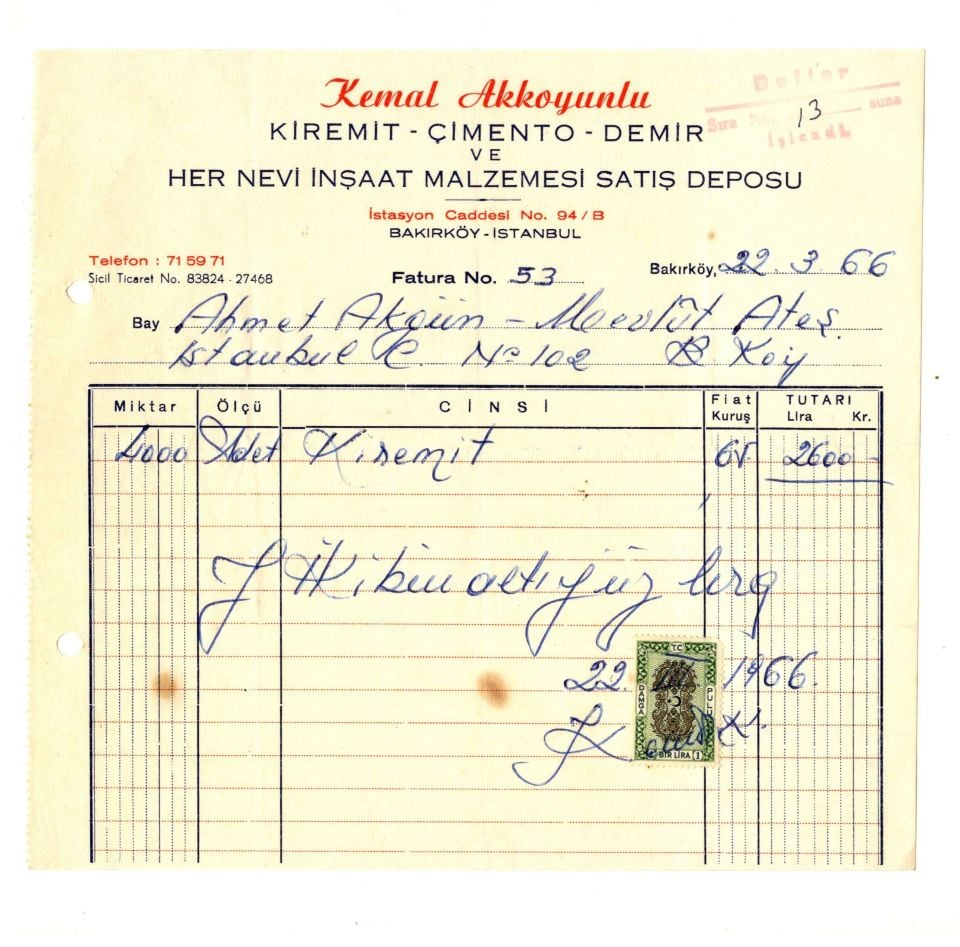 Kemal Akkoyunlu
KİREMİT - ÇİMENTO - DEMİR
VE
HER NEVİ İNŞAAT MALZEMESİ SATIŞ DEPOSU
Defter
Sıra No. 13 suna
İşlendi.
İstasyon Caddesi No. 94/B
BAKIRKÖY-İSTANBUL
Telefon : 71 59 71
Sicil Ticaret No. 83824 - 27468
Fatura No. 53
Bakırköy, 22.3.66
Bay Ahmet Akgün - Mevlût Ateş.
İstanbul C. No 102 B. Köy
Miktar Ölçü CİNSİ Fiat Kuruş TUTARI Lira Kr.
4000 Adet Kiremit 65 2600 -
İkibinaltıyüz lira
22. 1966.
T.C.
DAMGA PULU
BİR LİRA 1